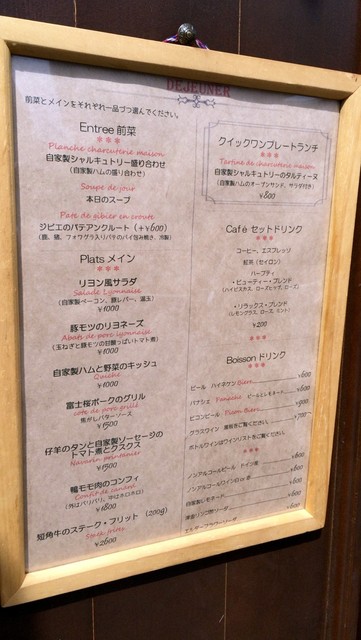 DEJEUNER
前菜とメインをそれぞれ一品づつ選んでください。
Entree 前菜
Planche charcuterie maison
自家製シャルキュトリー盛り合わせ
(自家製ハムの盛り合わせ)
Soupe de jour
本日のスープ
Pate de gibier en croute
ジビエのパテアンクルート (+¥600)
Plats メイン
リヨン風サラダ
Salade Lyonnaise
(自家製ベーコン、豚レバー、温玉)
¥1000
豚モツのリヨネーズ
Abats de porc lyonnaise
(玉ねぎと豚モツの甘酸っぱいトマト煮)
¥1000
自家製ハムと野菜のキッシュ
Quiche
¥1000
富士桜ポークのグリル
cote de porc grille
焦がしバターソース
¥1500
仔羊のタンと自家製ソーセージの
トマト煮とクスクス
Navarin printanier
¥1500
鴨モモ肉のコンフィ
Confit de canard
(外はパリパリ、中はホロホロ)
¥1800
短角牛のステーク・フリット (200g)
Steak frites
¥2600
クイックワンプレートランチ
Tartine de charcuterie maison
自家製シャルキュトリーのタルティーヌ
(自家製ハムのオープンサンド、サラダ付き)
¥800
Café セットドリンク
コーヒー、エスプレッソ
紅茶 (セイロン)
ハーブティ
・ビューティー・ブレンド
(ハイビスカス、ローズヒップ、ローズ)
・リラックス・ブレンド
(レモングラス、ローズ、ミント)
¥200
Boisson ドリンク
ビール ハイネケン Bière ¥600
パナシェ Panaché ¥600
ピコンビール Picon Bière ¥900
グラスワイン ¥700
ボトルワインはワインリストをご覧ください。
ノンアルコールビール ドイツ産 ¥600
ノンアルコールワイン ¥600
自家製レモネード ¥600